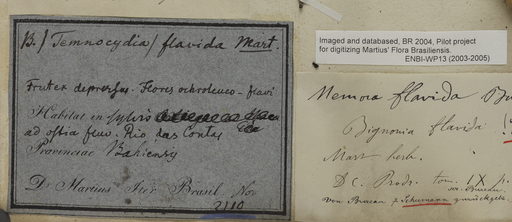 B. / Temnocydia / flavida Mart.
Frutex depressus. Flores ochroleuco-flavi
Habitat in sylvis
ad ostia fluv. Rio das Contas
Provinciae Bahiensis
Dr Martius Iter Brasil. Nov
2110
Imaged and databased, BR 2004, Pilot project
for digitizing Martius' Flora Brasiliensis.
ENBI-WP13 (2003-2005)
Memora flavida Bu
Bignonia flavida
Mart. herb.
DC. Prodr. tom. IX p.
von Bureau & Schumann zurückgeb.